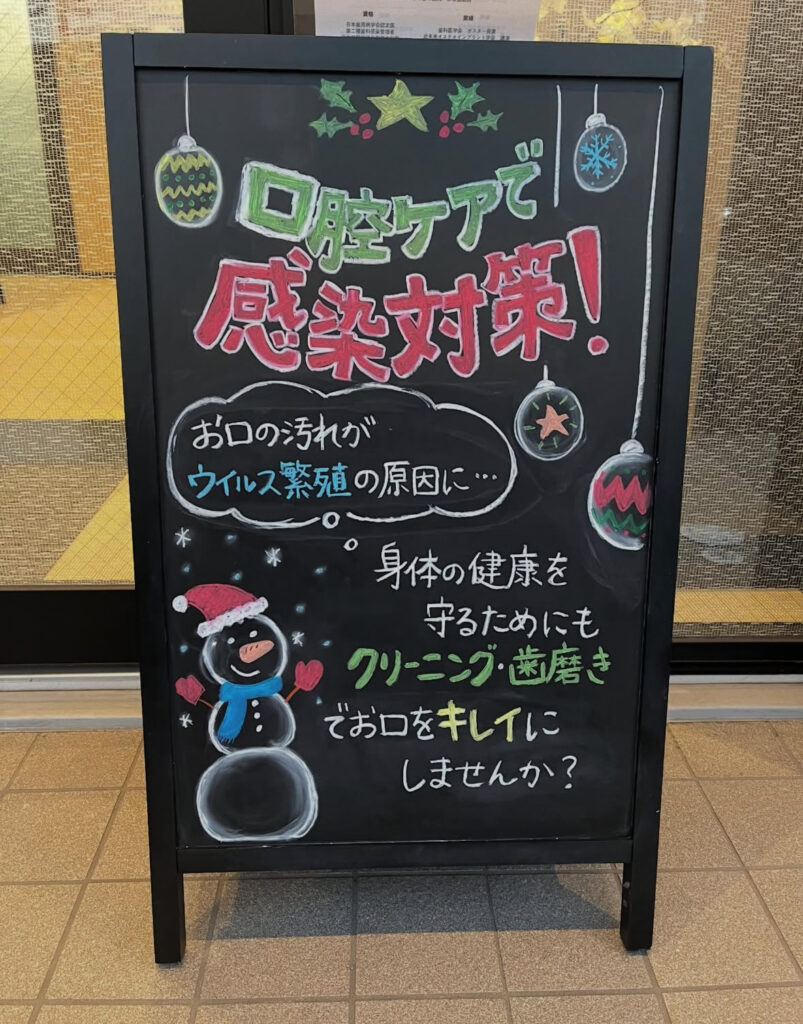 資格
業績
日本歯周病学会認定医
口腔ケアで
感染対策!
お口の汚れが
ウイルス繁殖の原因に…
身体の健康を
守るためにも
クリーニング・歯磨き
でお口をキレイに
しませんか?